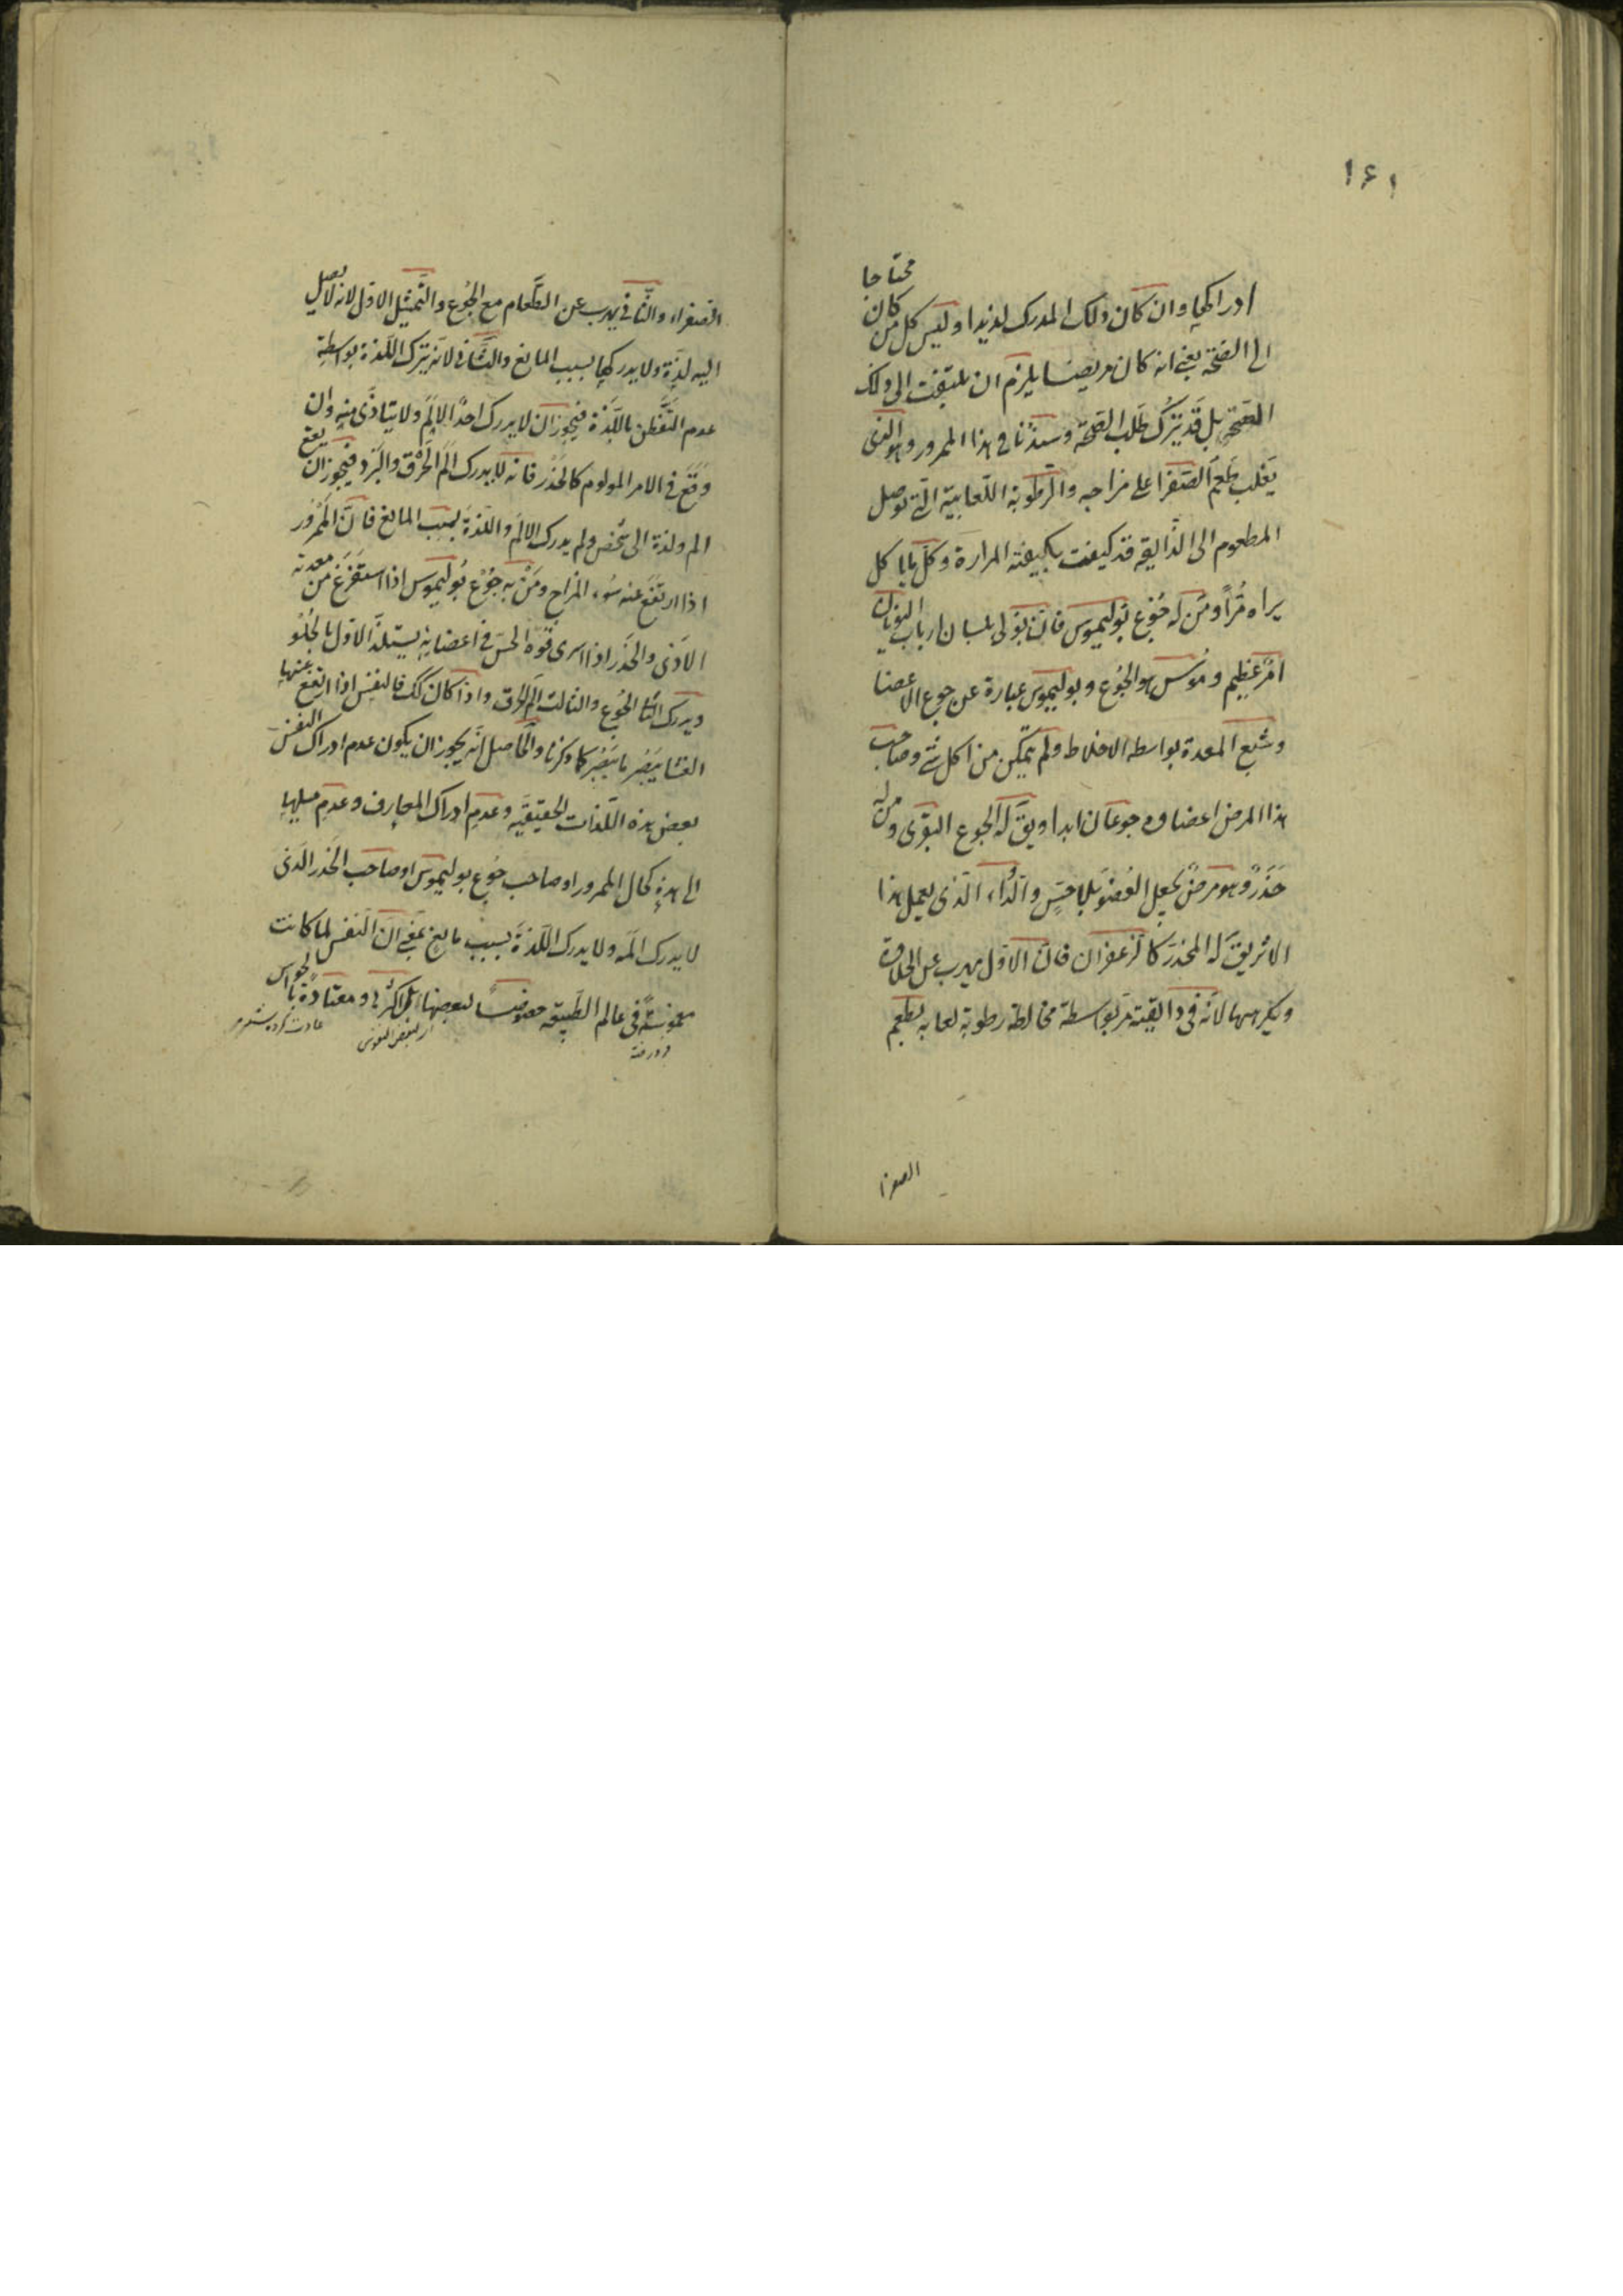 ١٦١
ادراكها وان كان ذلك المدرك لذيذا وليس كل من كان محتاجا
الى الصحة يعنى انه كان مريضا يلزم ان يلتفت الى ذلك
الصحة بل قد يترك طلب الصحة وسيذنا فى هذا الممرور وهو الذى
يغلب طعم الصفرا على مزاجه والرطوبة اللعابية التى توصل
المطعوم الى الذايقه قد كيفت بكيفته المرارة وكل ما ياكل
يراه مرا ومن له جوع بوليموس فان بولى بلسان ارباب اليونان
امر عظيم وموس هو الجوع وبوليموس عبارة عن جوع الاعضا
وشبع المعدة بواسطه الاخلاط ولم يتمكن من اكل شئ وصاحب
هذا المرض اعضاوه جوعان ابدا ويق له الجوع البقرى ومن له
خدر وهو مرض يجعل العضو بلا حس والدّاء الذى يعمل هذا
الاثر يق له المخدر كالزعفران فان الاول يهرب عن الحلاوة
ويكرهها لانه فى ذايقته مر بواسطة مخالطة رطوبة لعابه بطعم
الصفرا
الصفراء والثانى يهرب عن الطعام مع الجوع والتمثيل الاول لانه لا يصل
اليه لذة ولا يدركها بسبب المانع والثانى لانه يترك اللذة بواسطة
عدم التفطن باللذة فيجوز ان لا يدرك احد الالم ولا يتاذى منه وان
وقع فى الامر المولوم كالخدر فانه لا يدرك الم الحرق والبرد فيجوز ان يقع
الم ولذة الى شخص ولم يدرك الالم واللذة بسبب المانع فان الممرور
اذا ارتفع عنه سوء المزاج ومن به جوع بوليموس اذا استفرغ من معدته
الاذى والخدر اذا اسرى قوة الحس فى اعضايه يستلذ الاول بالحلو
ويدرك الثا الجوع والثالث الم الحرق واذا كان كك فالنفس اذا ارتفع عنها
الغشا يبصر ما يبصر كما ذكرنا والحاصل انه يجوز ان يكون عدم ادراك النفس
بعض هذه اللذات الحقيقيه وعدم ادراك المعارف وعدم ميلها
الى هذه كحال الممرور او صاحب جوع بوليموس او صاحب الخدر الذى
لا يدرك المه ولا يدرك اللذة بسبب مانع يعنى ان النفس لما كانت
مغموسة فى عالم الطبيعه لبعضها بل اكثرها ومعتادة بالحواس